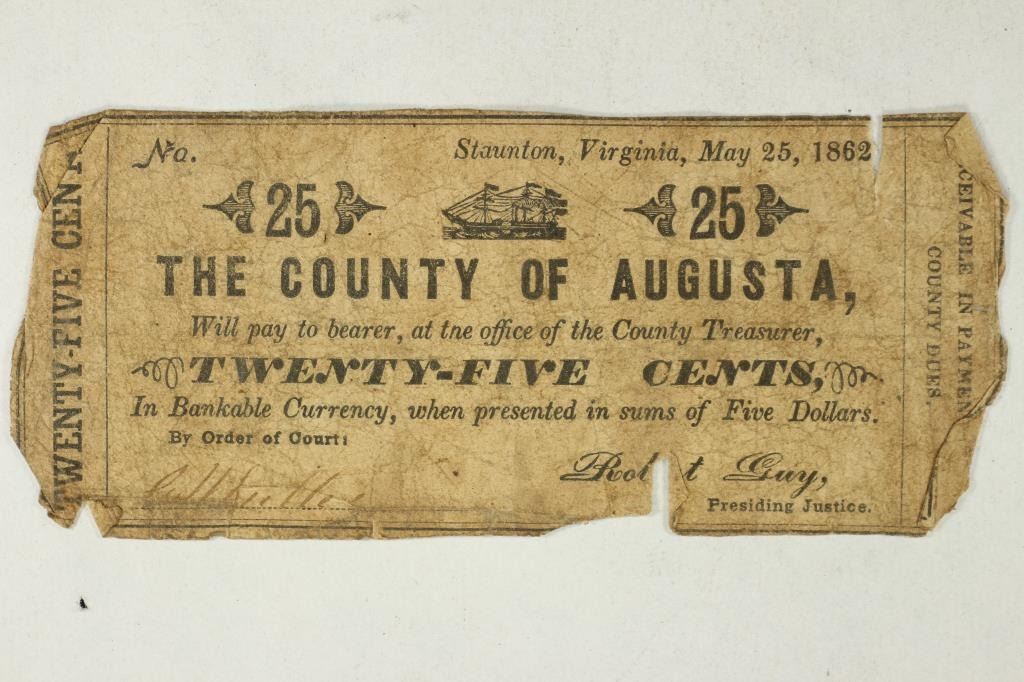 No. Staunton, Virginia, May 25, 1862
25 25
THE COUNTY OF AUGUSTA,
Will pay to bearer, at tne office of the County Treasurer,
TWENTY-FIVE CENTS,
In Bankable Currency, when presented in sums of Five Dollars.
By Order of Court:
Rob t Guy,
Presiding Justice.
TWENTY-FIVE CENT
CEIVABLE IN PAYMEN
COUNTY DUES.